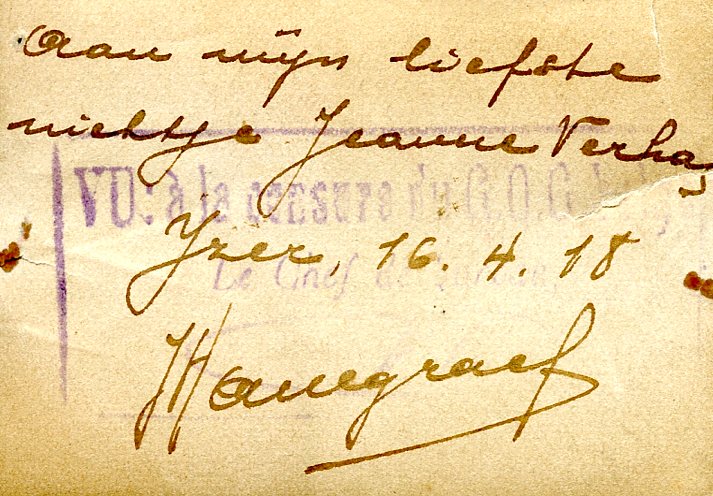 Aan mijn liefste
nichtje Jeanne Verha
VU: à la censure du G.Q.G.
Yzer, 16.4.18
Le Chef de
JHanegraef